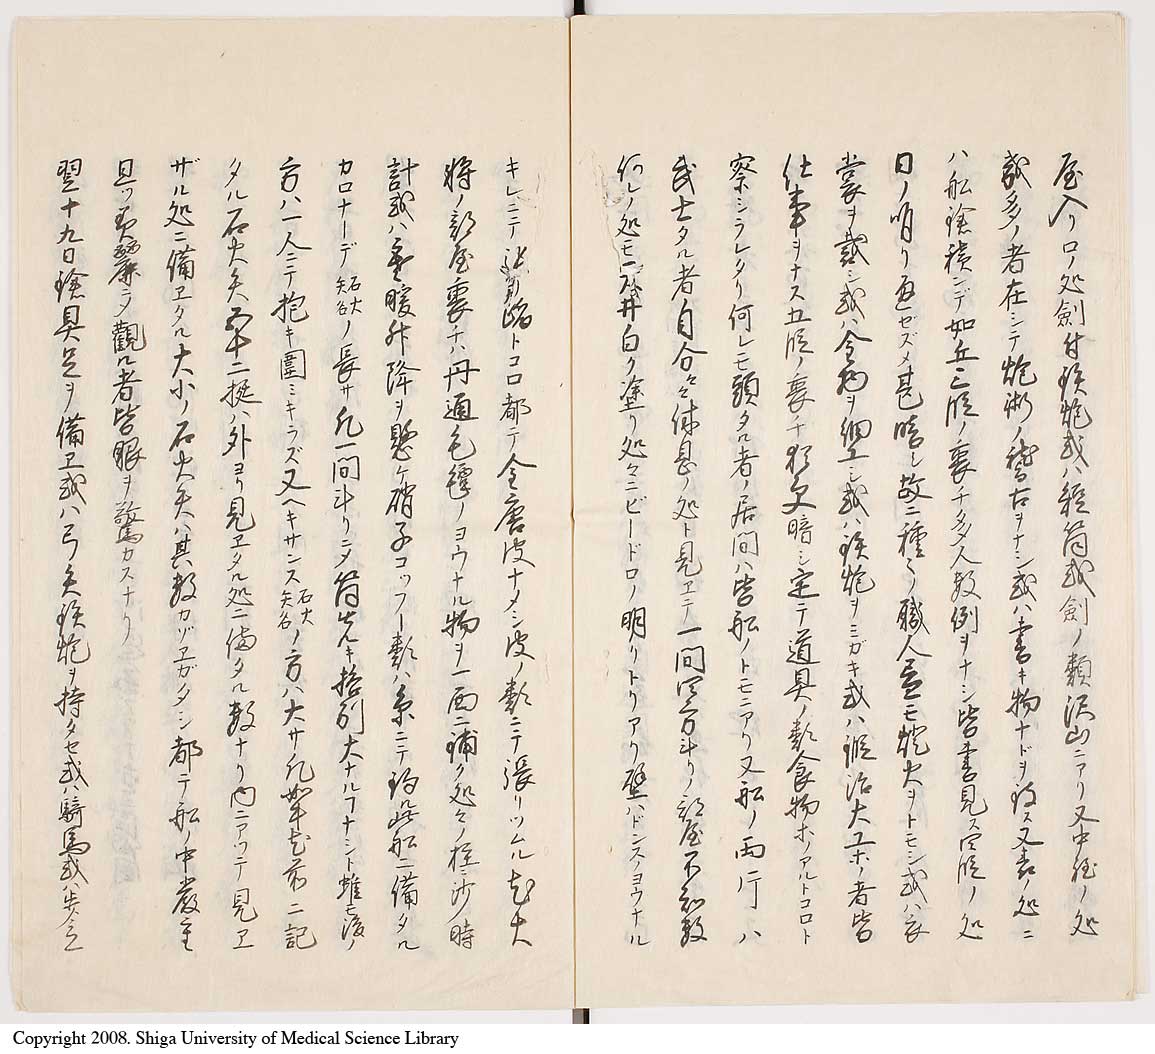 屋入リ口ノ処劍付鉄炮或ハ短筒或劍ノ類沢山ニアリ又中段ノ処
数多ノ者在シテ炮術ノ稽古ヲナシ或ハ書キ物ナドヲ致ス又表ノ処ニ
ハ船積デ如丘三段ノ裏チ多人数例ヲナシ皆書見ス四段ノ処
日ノ明リ通ゼズ〆甚暗シ故ニ種々ノ職人昼モ燈火ヲトモシ或ハ衣
裳ヲ裁シ或ハ金物ヲ細工シ或ハ鉄炮ヲミガキ或ハ鍛冶大工ホノ者皆
仕事ヲナス五段ノ裏チ猶更暗シ定テ道具ノ類食物ホノアルトコロト
察シラレタリ何レモ頭タル者ノ居間ハ皆船ノトモニアリ又船ノ両斤ハ
武士タル者自分々々休息ノ処ト見エテ一間四方斗リノ部屋不知数
何レノ処モ天井白ク塗リ処々ニビードロノ明リトリアリ壁ハドンスノヨウナル
キレニテ張ル踏トコロ都テ金唐皮ナメシ皮ノ類ニテ張リツムル尤大
将ノ部屋裏チハ丹通毛氈ノヨウナル物ヲ一面ニ鋪ク処々ノ柱ニ時
計或ハ寒暖升降ヲ懸ケ硝子コツフノ類ハ糸ニテ釣ル此船ニ備タル
カロナーデ石火矢名ノ長サ凡一間斗リニ〆筒先キ格別大ナルフナシト雖モ後ノ
方ハ一人ニテ抱キ圍ミキラズ又ヘキサンス石火矢名ノ方ハ大サ凡半尤前ニ記
タル石火矢五十二挺ハ外ヨリ見エタル処ニ備タル数ナリ内ニアツテ見エ
ザル処ニ備エタル大小ノ石火矢ハ其数カゾエガタシ都テ船ノ中嚴重
且ツ美麗ニ〆觀ル者皆眼ヲ驚カスナリ
翌十九日鎗具足ヲ備エ或ハ弓矢鉄炮ヲ持タセ或ハ騎馬或ハ歩立